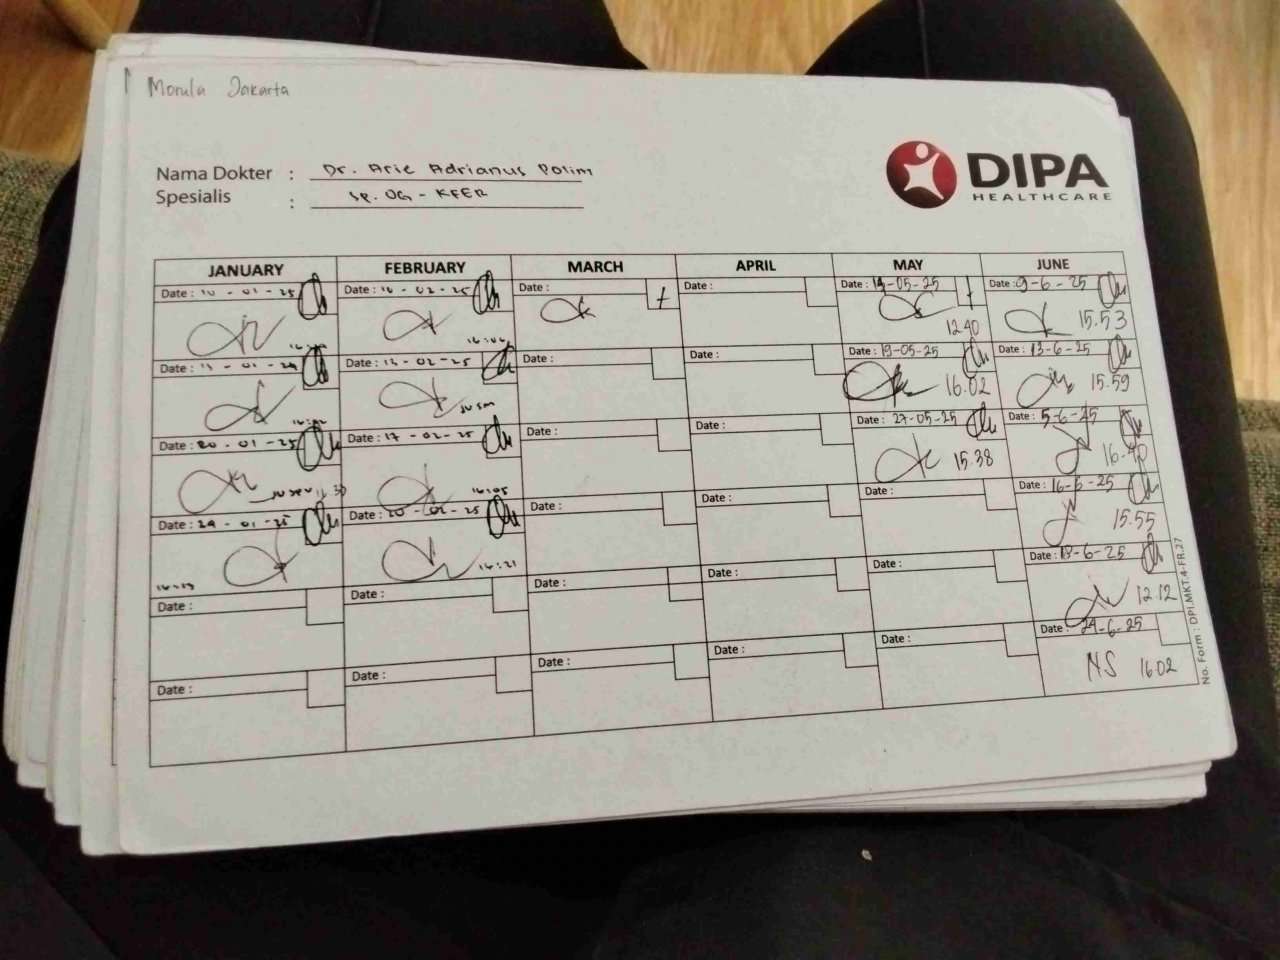 Morula Jakarta
Nama Dokter : Dr. Arie Adrianus Polim
Spesialis : SP. OG - KFER
DIPA
HEALTHCARE
JANUARY FEBRUARY MARCH APRIL MAY JUNE
Date : 10 - 01 - 25 Date : Date : Date : Date : 9-6-25
16:06 12.40 15.53
Date : Date : 12-02-25 Date : Date : Date : 19-05-25 Date : 13-6-25
16.02 15.59
Date : 20 - 01 - 25 Date : 17 - 02 - 25 Date : Date : Date : 27-05-25 Date :
16:05 15.38 16.40
Date : 24 - 01 - 25 Date : 20 - 02 - 25 Date : Date : Date : Date :
16:21 15.55
Date : Date : Date : Date : Date : Date : 18-6-25
12.12
Date : Date : Date : Date : Date : Date : 24-6-25
NS 16.02
No. Form : DPI.MKT.4-FR.27